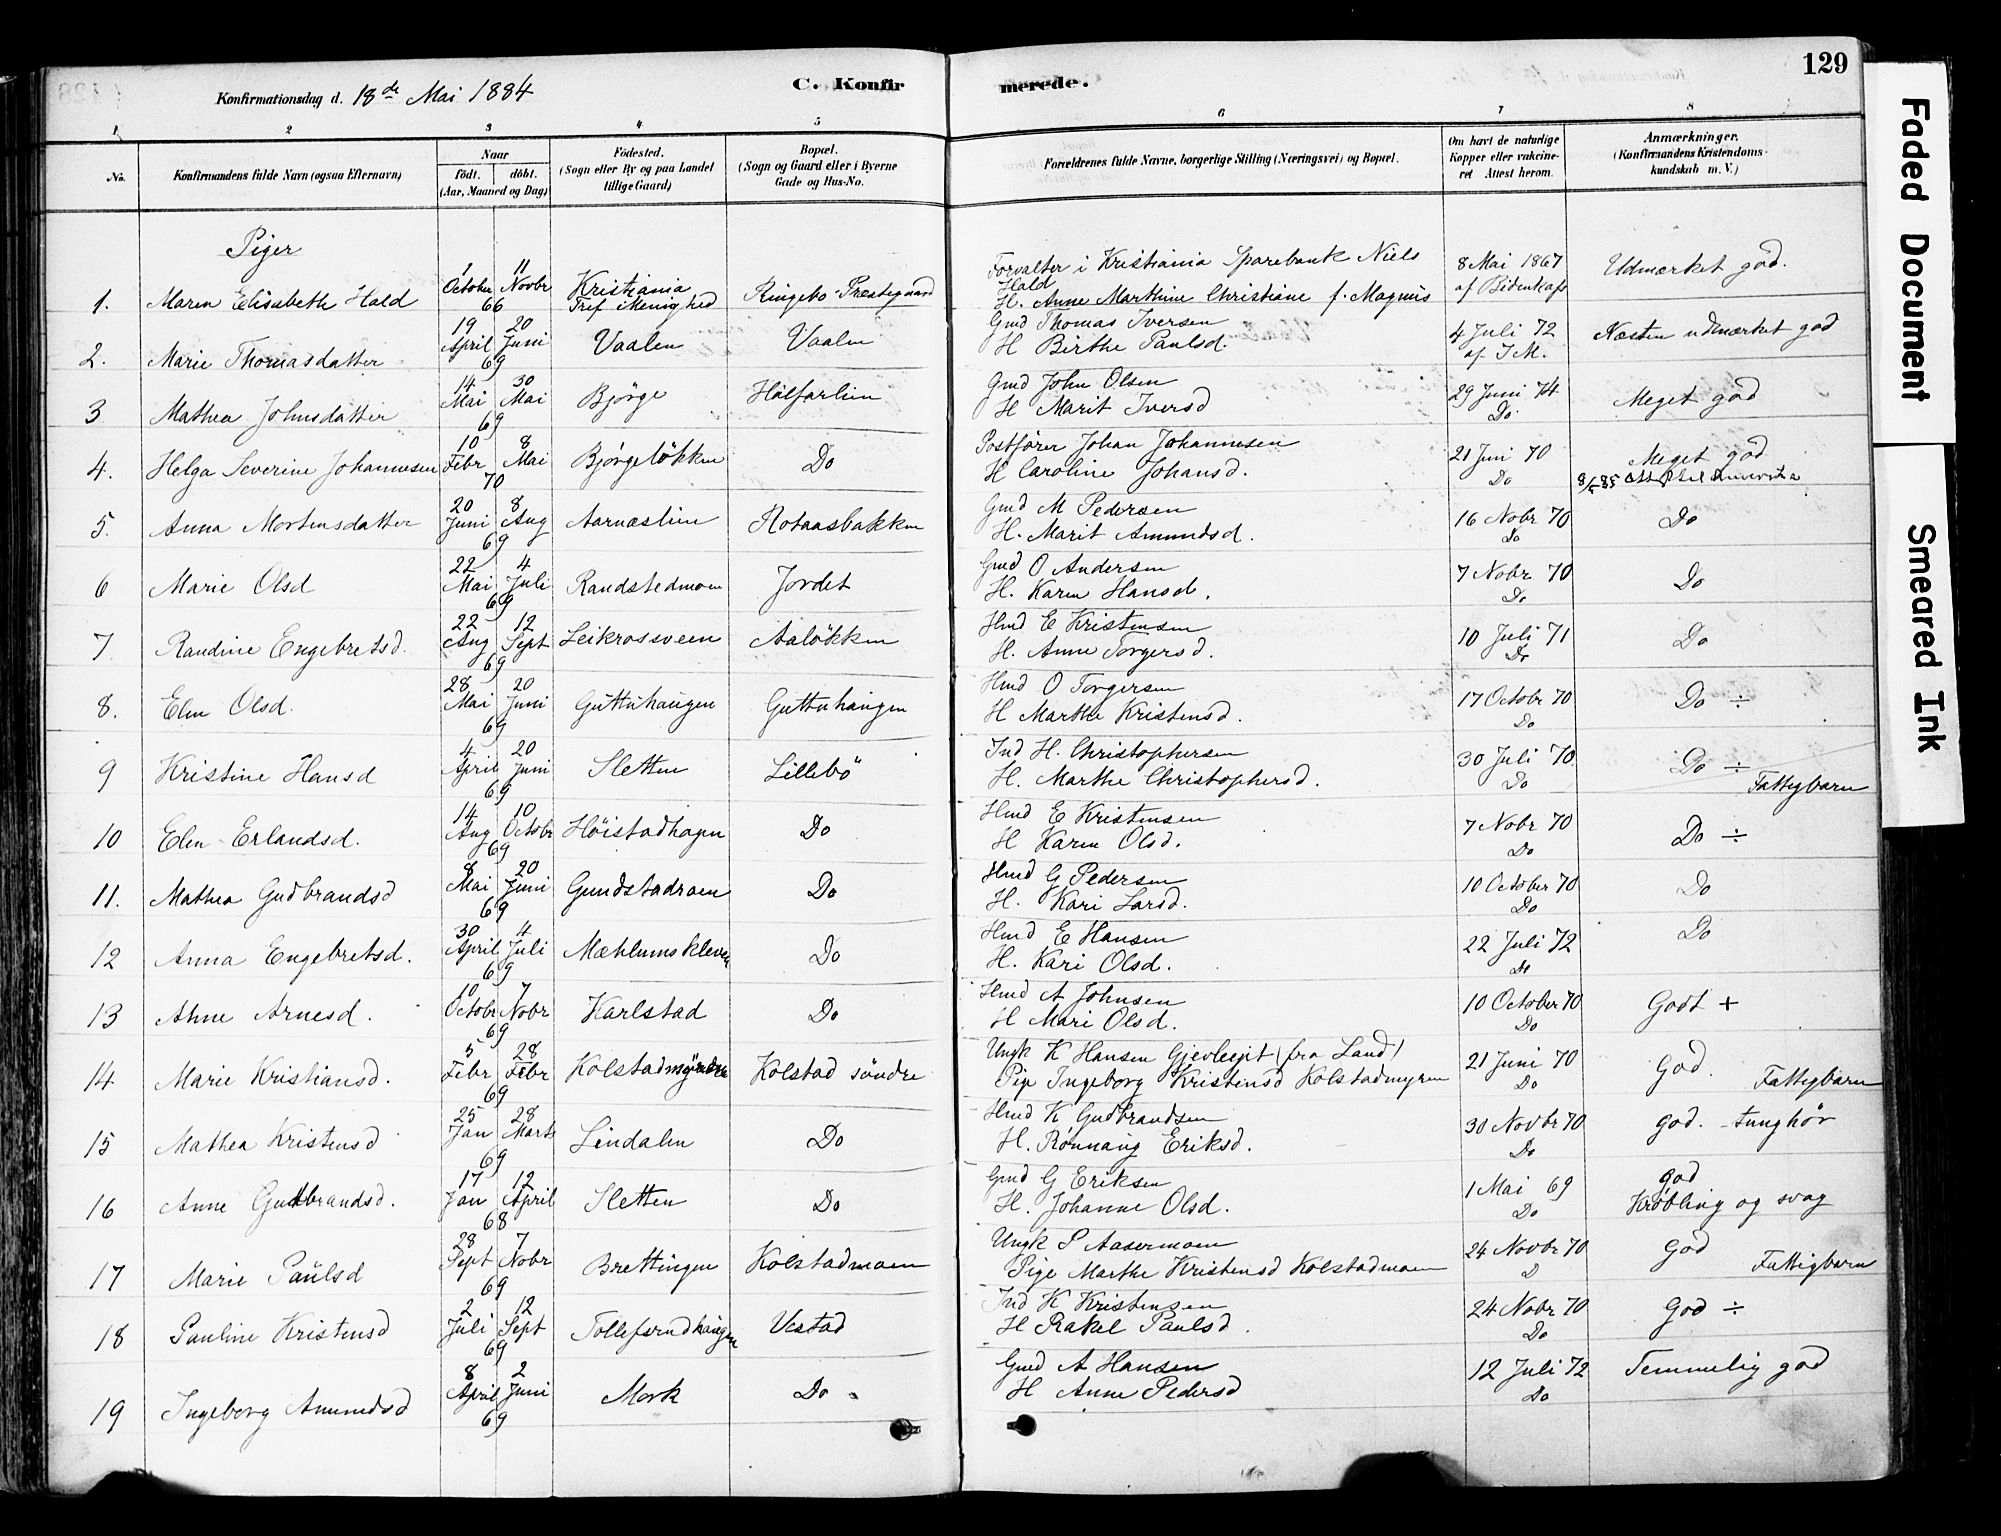 129
Konfirmationsdag d. 18de Mai 1884
C. Konfirmerede.
1 2 3 4 5 6 7 8
No.
Konfirmandens fulde Navn (ogsaa Efternavn)
Naar
født. døbt.
(Aar, Maaned og Dag)
Fødested.
(Sogn eller By og paa Landet
tillige Gaard)
Bopæl.
(Sogn og Gaard eller i Byerne
Gade og Hus-No.
Forældrenes fulde Navne, borgerlige Stilling (Næringsvei) og Bopæl.
Om havt de naturlige
Kopper eller vakcine-
ret Attest herom.
Anmærkninger.
(Konfirmandens Kristendoms-
kundskab m. V.)
Piger
1. Maren Elisabeth Hald 1 October 11 Novbr 66 Kristiania Tref. Menighed Ringebo Præstegaard Forvalter i Kristiania Sparebank Niels Hald
H. Anne Marthine Christiane f. Magnus 8 Mai 1867 af Bidenkap Udmærket god.
2. Marie Thomasdatter 19 April 20 Juni 69 Vaalen Vaalen Gmd Thomas Iversen
H Birthe Paulsd. 4 Juli 72 af I M. Næsten udmærket god
3 Mathea Johnsdatter 14 Mai 30 Mai 69 Bjørge Hølfarlien Gmd John Olsen
H Marit Iversd 29 Juni 74 Do. Meget god
4. Helga Severine Johannesen 10 Febr 8 Mai 70 Bjørgeløkken Do Postfører Johan Johannesen
H Caroline Johansd. 21 Juni 70 Do Meget god
5. Anna Mortensdatter 20 Juni 8 Aug 69 Aarnæslien Rotaasbakken Gmd M Pedersen
H. Marit Amundsd. 16 Nobr 70 Do Do
6 Marie Olsd 22 Mai 4 Juli 69 Randstedmoen Jordet Gmd O Andersen
H. Karen Hansd. 7 Nobr 70 Do Do
7 Randine Engebretsd. 22 Aug 12 Sept 69 Leikrossveen Aaløkken Hmd E Kristensen
H. Anne Torgersd. 10 Juli 71 Do Do
8. Elen Olsd. 28 Mai 20 Juni 69 Guttuhaugen Guttuhaugen Hmd O Torgersen
H Marthe Kristensd. 17 Octobr 70 Do Do ÷
9 Kristine Hansd 4 April 20 Juni 69 Sletten Lillebø Ind H. Christophersen
H. Marthe Christophersd. 30 Juli 70 Do Do ÷ Fattigbarn
10 Elen Erlandsd. 14 Aug 10 Octobr 69 Høistadhagen Do Hmd E Kristensen
H Karen Olsd. 7 Nobr 70 Do Do ÷
11. Mathea Gudbrandsd 8 Mai 20 Juni 69 Gundstadmoen Do Hmd G Pedersen
H. Kari Larsd. 10 October 70 Do Do
12 Anna Engebretsd. 30 April 4 Juli 69 Mæhlumskleven Do Hmd E Hansen
H. Kari Olsd. 22 Juli 72 Do Do
13 Anne Arnesd. 10 Octobr 7 Nobr 69 Karlstad Do Hmd A Johnsen
H Mari Olsd. 10 October 70 Do Godt +
14 Marie Kristiansd. 5 Febr 28 Febr 69 Kolstad søndre Ungk K Hansen (fra Land)
Pige Ingeborg Kristensd Kolstadmyren 21 Juni 70 Do God. Fattigbarn
15 Mathea Kristensd 25 Jan 28 Marts 69 Lindalen Do Hmd K Gudbrandsen
H. Rønnaug Eriksd. 30 Novbr 70 Do god. - tunghør
16 Anne Gudbrandsd. 17 Jan 12 April 68 Sletten Do Gmd G Eriksen
H. Johanne Olsd. 1 Mai 69 Do god
Krøbling og svag
17 Marie Paulsd 28 Sept 7 Nobr 69 Brettingen Kolstadmoen Ungk P Aasermoen
Pige Marthe Kristensd Kolstadmoen 24 Novbr 70 D God Fattigbarn
18 Pauline Kristensd 2 Juli 12 Sept 69 Tollefsrudhaugen Vestad Ind K Kristensen
H Rakel Paulsd. 24 Nobr 70 Do God ÷
19 Ingeborg Amundsd 8 April 2 Juni 69 Mork Do. Gmd A Hansen
H Anne Pedersd 12 Juli 72 Do Temmelig god
Faded Document
Smeared Ink